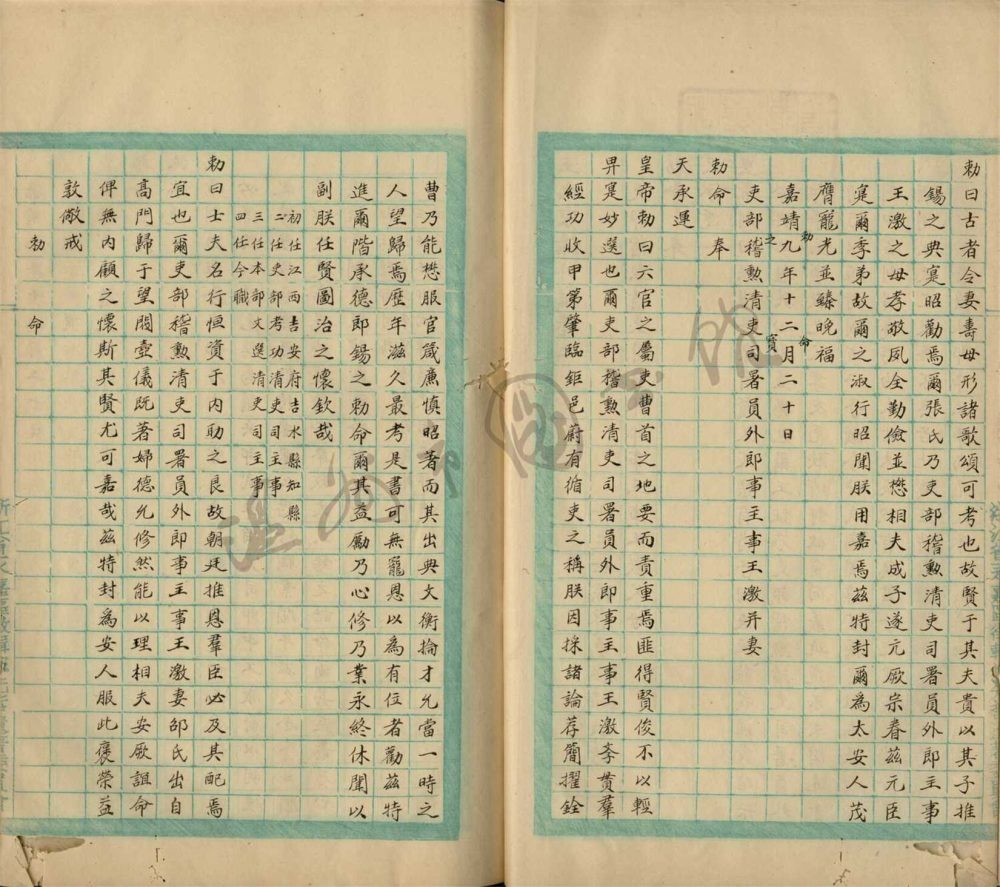 勅曰古者令妻壽母形諸歌頌可考也故賢于其夫貴以其子推
錫之典寔昭勸焉爾張氏乃吏部稽勲清吏司署員外郎主事
王激之母孝敬夙全勤儉並懋相夫成子遂亢厥宗眷茲元臣
寔爾季弟故爾之淑行昭聞朕用嘉焉茲特封爾為太安人茂
膺寵光並臻晚福
勅命
嘉靖九年十二月二十日
之寶
吏部稽勲清吏司署員外郎事主事王激并妻
勅命 奉
天承運
皇帝勅曰六官之屬吏曹首之地要而責重焉匪得賢俊不以輕
畀寔妙選也爾吏部稽勲清吏司署員外郎事主事王激李貫羣
經功收甲第肇臨鉅邑蔚有循吏之稱朕因採諸論荐簡擢銓
曹乃能懋服官箴廉慎昭著而其出典文衡掄才允當一時之
人望歸焉歷年滋久最考是書可無寵恩以為有位者勸茲特
進爾階承德郎錫之勅命爾其益勵乃心修乃業永終休聞以
副朕任賢圖治之懷欽哉
初任江西吉安府吉水縣知縣
二任吏部考功清吏司主事
三任本部文選清吏司主事
四任今職
勅曰士夫名行恒資于内助之良故朝廷推恩羣臣必及其配焉
宜也爾吏部稽勲清吏司署員外郎事主事王激妻邵氏出自
高門歸于望閥壼儀既著婦德允修然能以理相夫安厥詛命
俾無内顧之懷斯其賢尤可嘉哉茲特封為安人服此褒榮益
敦儆戒
勅 命